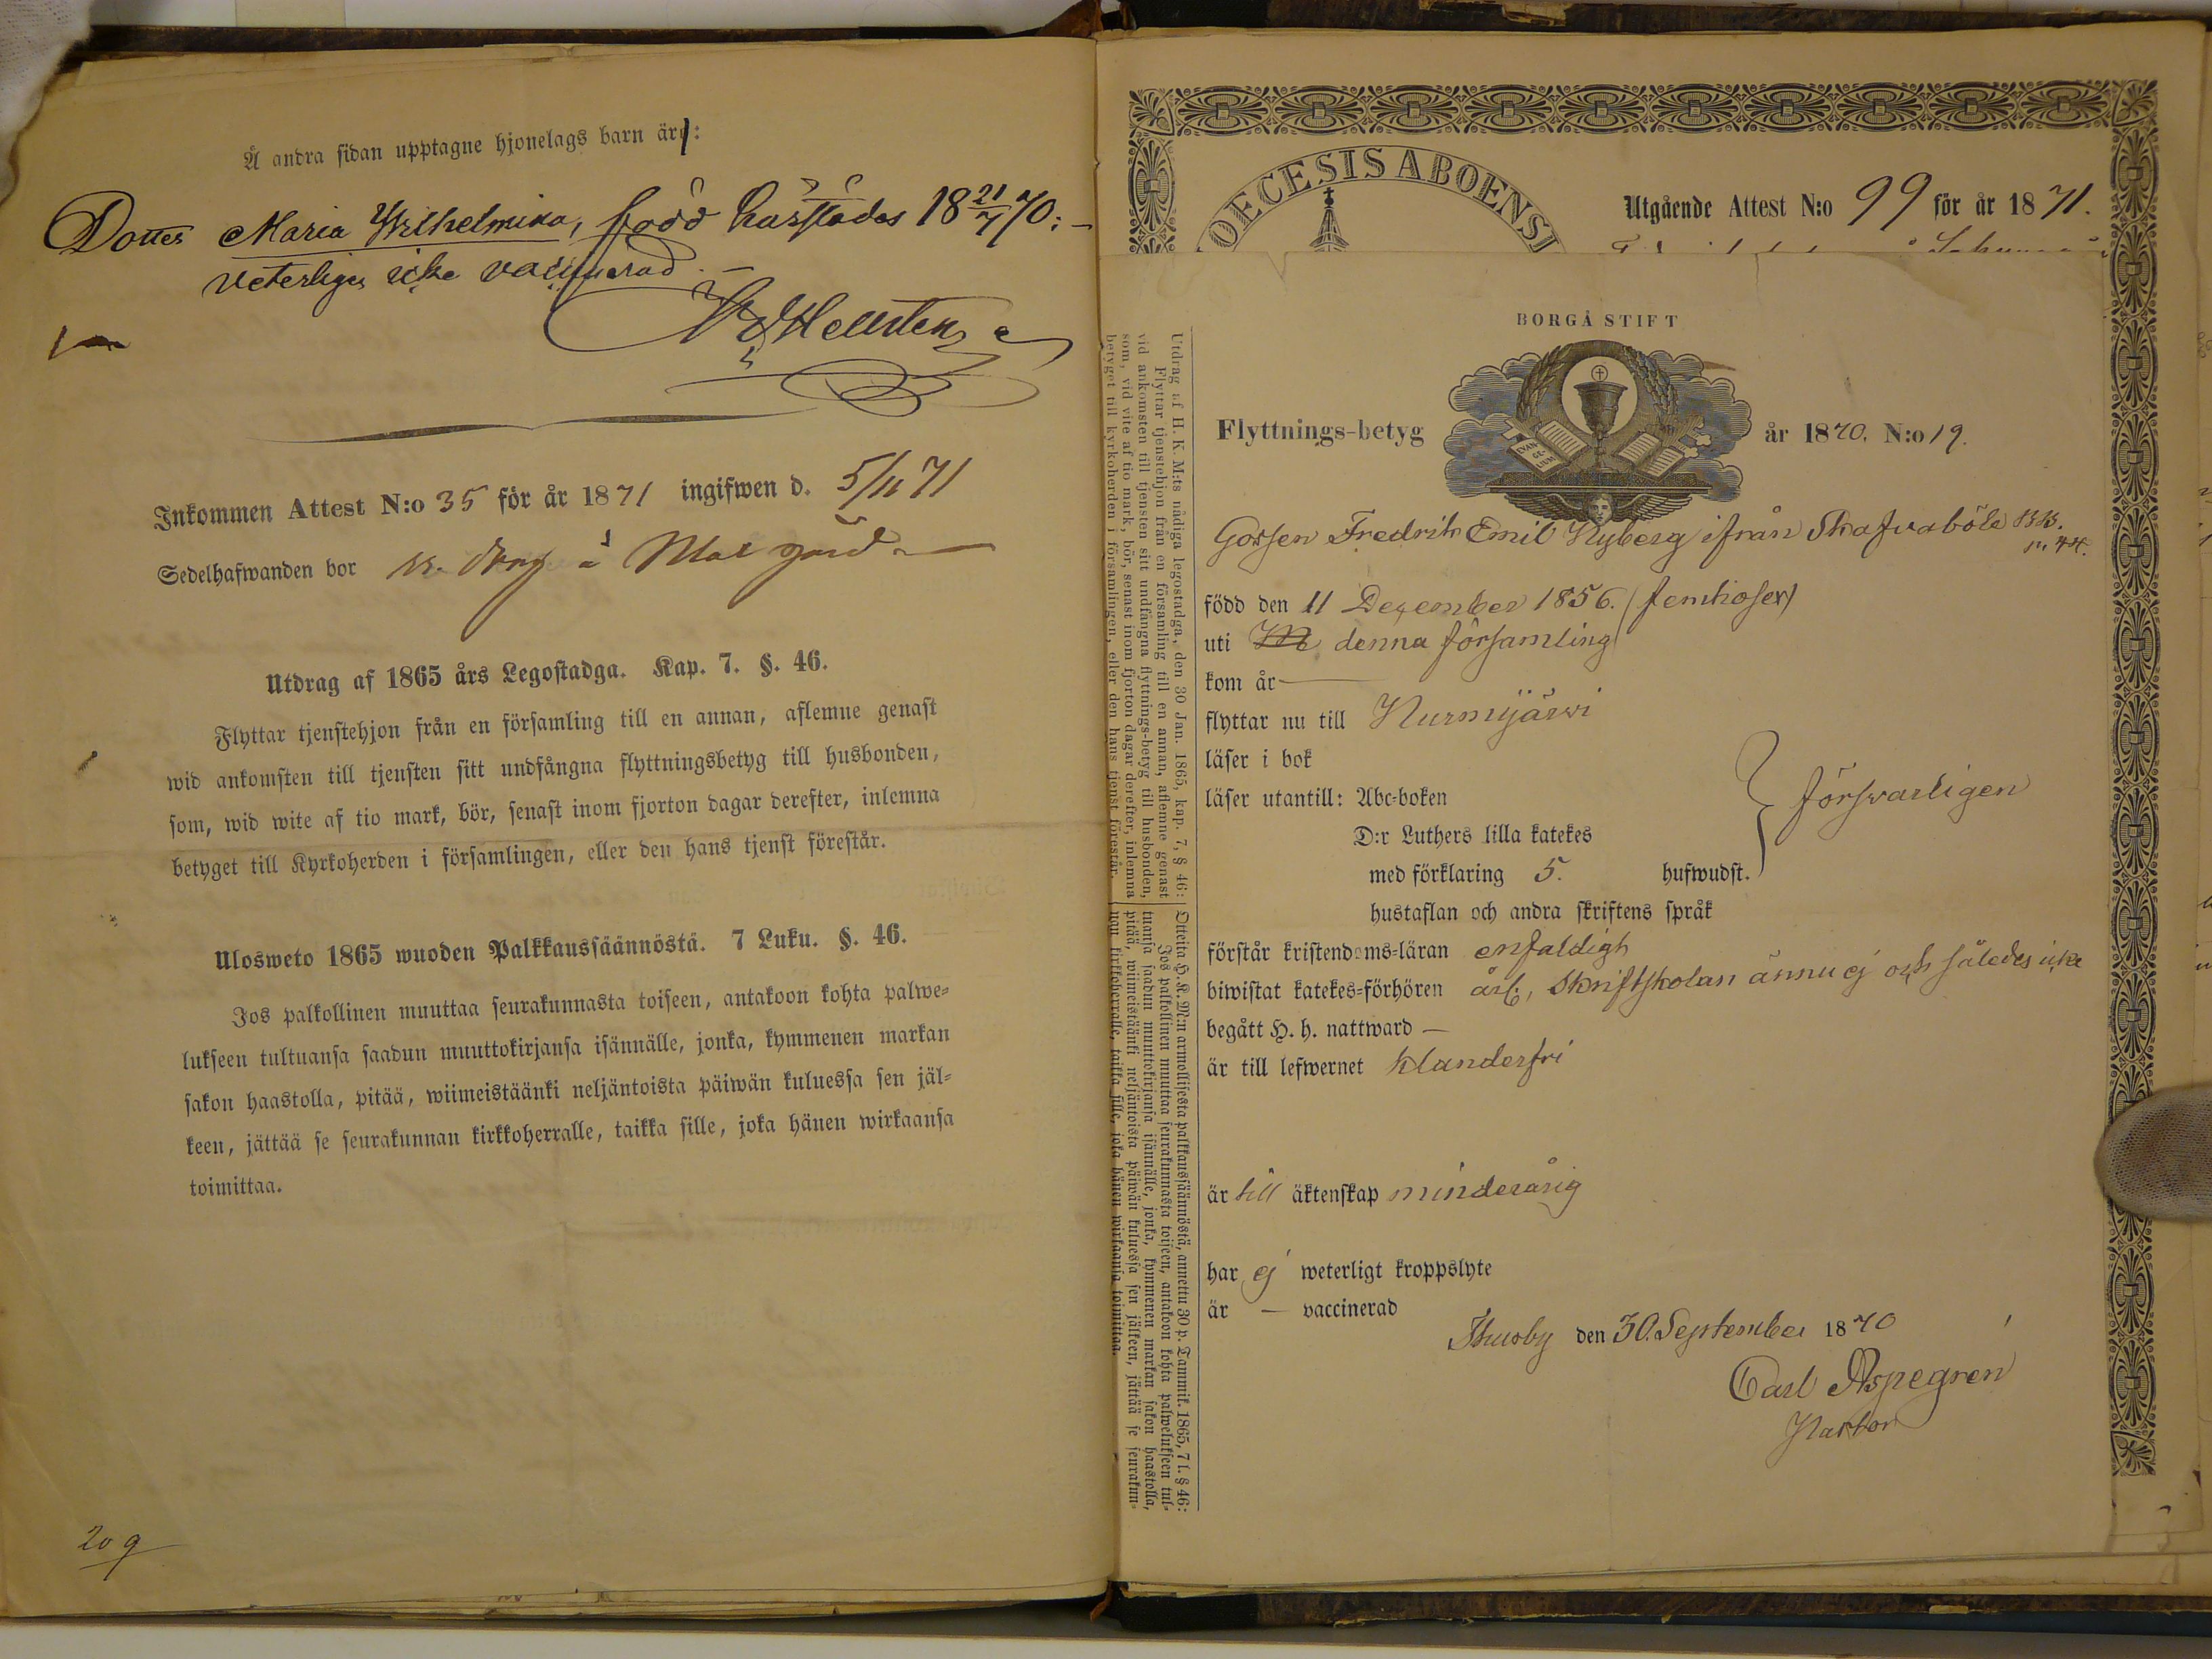 Å andra sidan upptagne hjonelags barn är:
Dotter Maria Wilhelmina, född härstädes 18 21/7 70:-
veterligen icke vaccinerad.-
Inkommen Attest N:o 35 för år 1871 ingifwen d. 5/11 71
Sedelhafwanden bor
Utdrag af 1865 års Legostadga. Kap. 7. §. 46.
Flyttar tjenstehjon från en församling till en annan, aflemne genast
wid ankomsten till tjensten sitt undfångna flyttningsbetyg till husbonden,
som, wid wite af tio mark, bör, senast inom fjorton dagar derefter, inlemna
betyget till Kyrkoherden i församlingen, eller den hans tjenst förestår.
Ulosweto 1865 wuoden Palkkaussäännöstä. 7 Luku. §. 46.
Jos palkollinen muuttaa seurakunnasta toiseen, antakoon kohta palwe-
lukseen tultuansa saadun muuttokirjansa isännälle, jonka, kymmenen markan
sakon haastolla, pitää, wiimeistäänki neljäntoista päiwän kuluessa sen jäl-
keen, jättää se seurakunnan kirkkoherralle, taikka sille, joka hänen wirkaansa
toimittaa.
209
OECESIS ABOENSI
Utgående Attest N:o 99 för år 1871.
BORGÅ STIFT
EVAN-
GE-
LIUM
Flyttnings-betyg år 1870. N:o 19.
Gossen Fredrik Emil Nyberg ifrån Skafvaböle
född den 11 December 1856.
uti denna församling
kom år —
flyttar nu till Nurmijärwi
läser i bok
läser utantill: Abc-boken
D:r Luthers lilla katekes
försvarligen
med förklaring 5. hufwudst.
hustaflan och andra skriftens språk
förstår kristendoms-läran enfaldigt
biwistat katekes-förhören årl:, Skriftskolan ännu ej och således icke
begått H. h. nattward —
är till lefwernet klanderfri
är till äktenskap minderårig
har ej weterligt kroppslyte
är — vaccinerad
Thusby den 30. September 1870
Carl Aspegren
Utdrag af H. K. M:ts nådiga legostadga, den 30 Jan. 1865, kap. 7, § 46:
Flyttar tjenstehjon från en församling till en annan, aflemne genast
vid ankomsten till tjensten sitt undfångna flyttnings-betyg till husbonden,
som, vid vite af tio mark, bör, senast inom fjorton dagar derefter, inlemna
betyget till kyrkoherden i församlingen, eller den hans tjenst förestår.
Otteita H. K. M:n armollisesta palkkaussäännöstä, annettu 30 p. Tammik. 1865, 7 l. § 46:
Jos palkollinen muuttaa seurakunnasta toiseen, antakoon kohta palwelukseen tul-
tuansa saadun muuttokirjansa isännälle, jonka, kymmenen markan sakon haastolla,
pitää, wiimeistäänki neljäntoista päiwän kuluessa sen jälkeen, jättää se seurakun-
nan kirkkoherralle, taikka sille, joka hänen wirkaansa toimittaa.